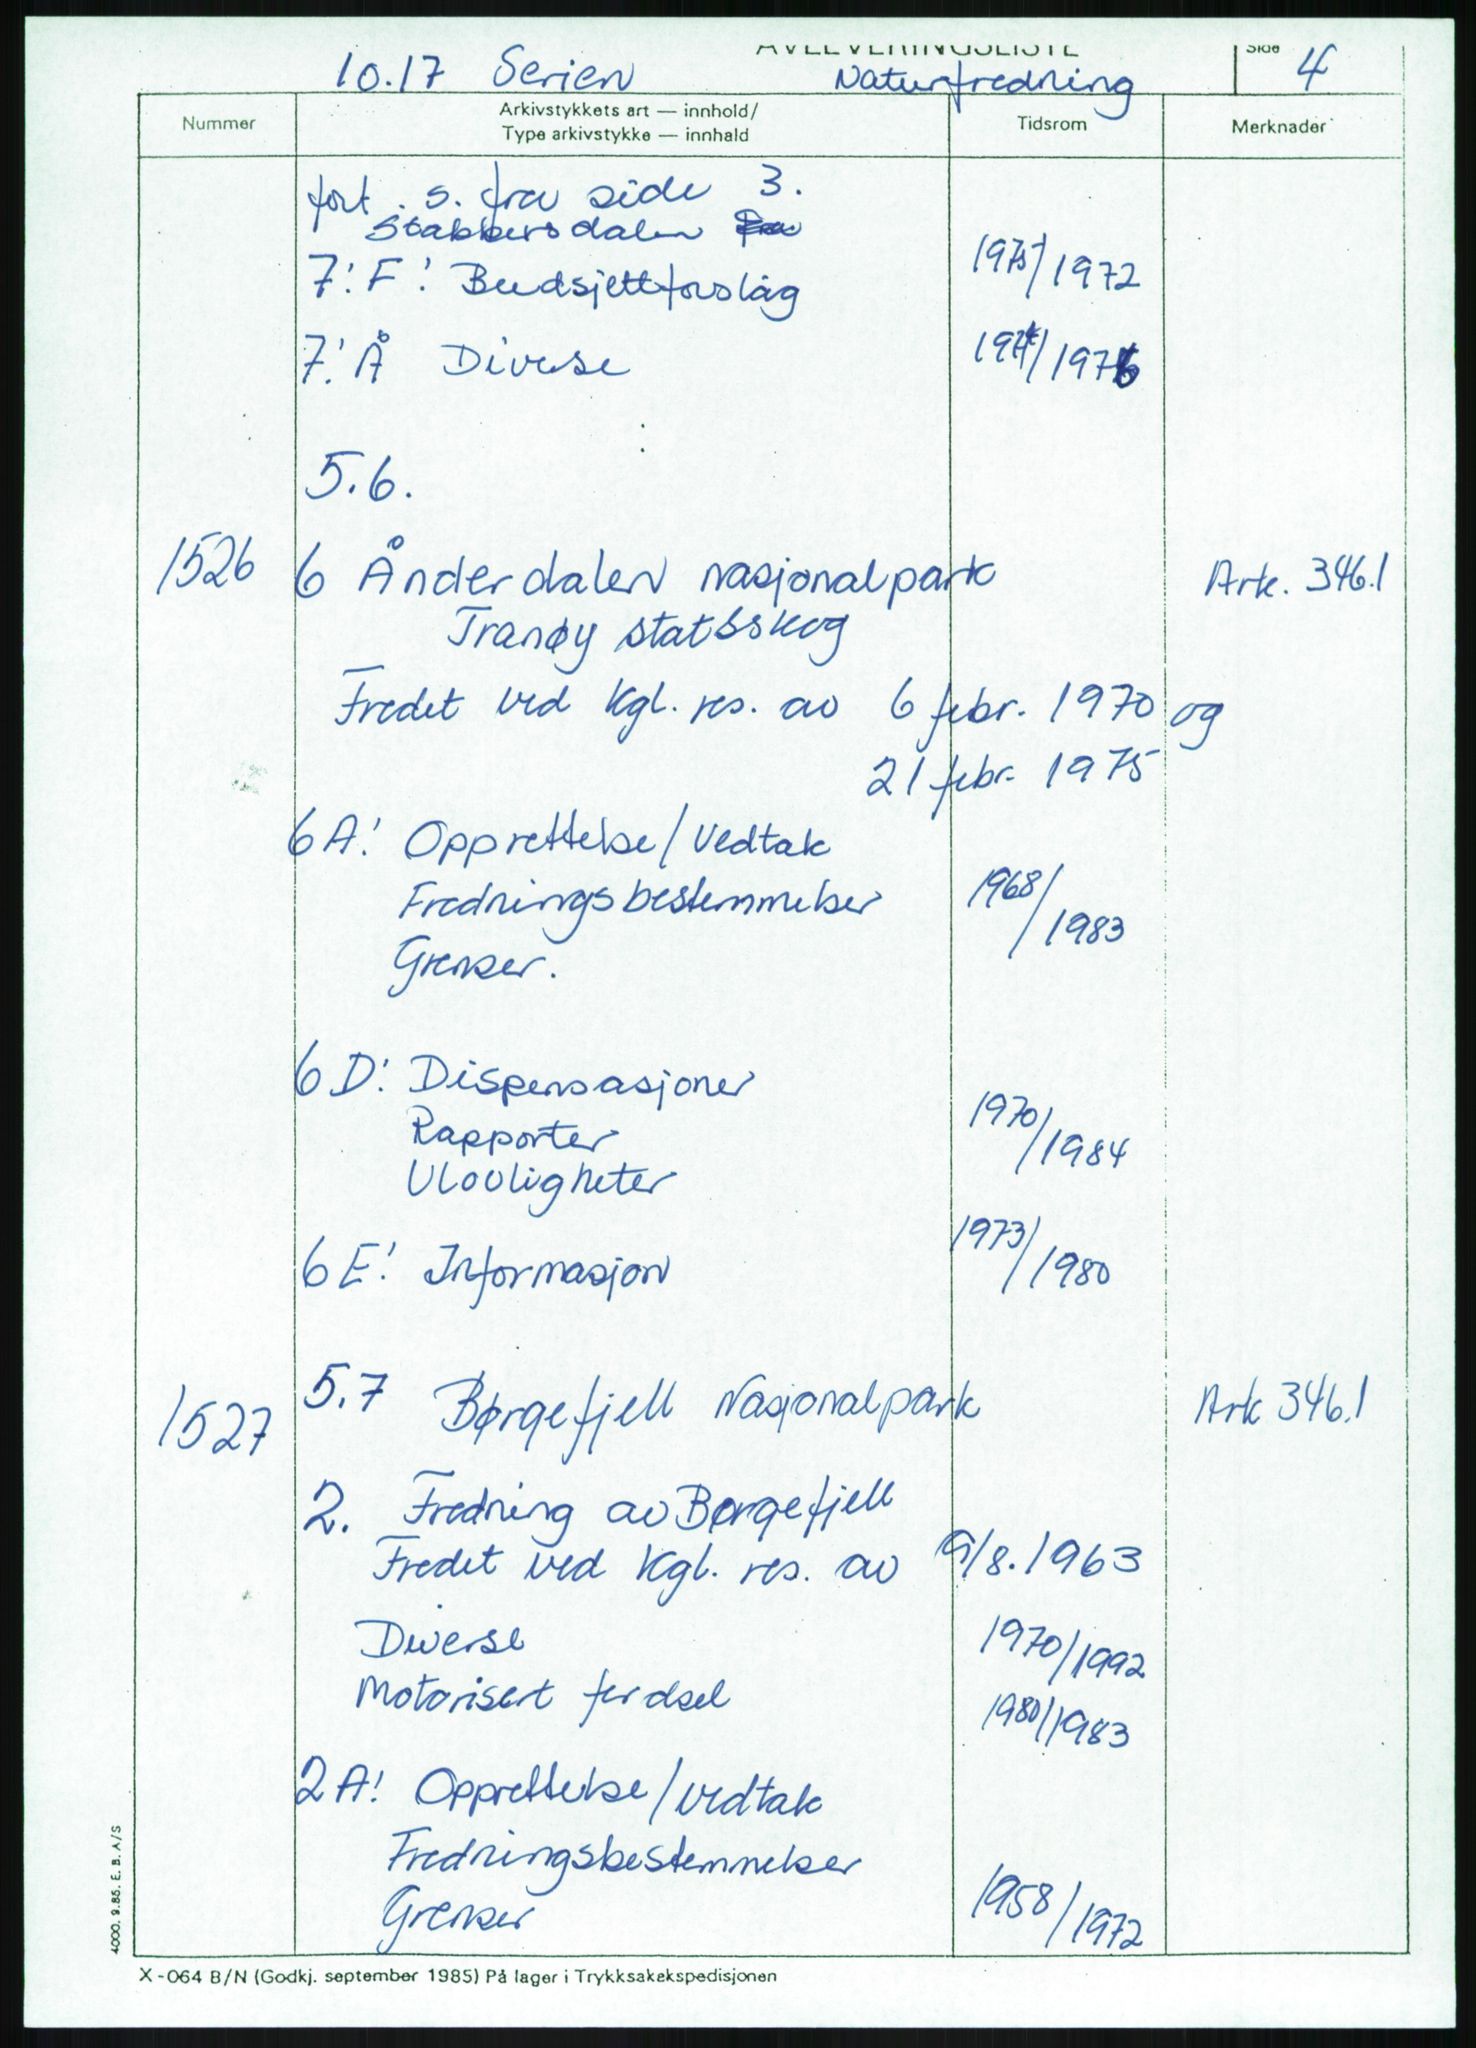 AVLEVERINGSLISTE Side 4
10.17 Serien Naturfredning
Nummer
Arkivstykkets art — innhold/
Type arkivstykke — innhald
Tidsrom
Merknader
fort. s. fra side 3.
Stabbersdalen
7: F: Budsjettforslag /1972
7: Å Diverse
5.6.
1526 6 Ånderdalen nasjonalpark Ark. 346.1
Tranøy statsskog
Fredet ved Kgl. res. av 6 febr. 1970 og
21 febr. 1975
6A: Opprettelse/Vedtak
Fredningsbestemmelser 1968/1983
Grenser.
6D: Dispensasjoner
Rapporter 1970/1984
Ulovligheter
6E: Informasjon 1973/1980
1527 5.7 Børgefjell Nasjonalpark Ark 346.1
2. Fredning av Børgefjell
Fredet ved Kgl. res. av 9/8.1963
Diverse 1970/1992
Motorisert ferdsel 1980/1983
2A: Opprettelse/vedtak
Fredningsbestemmelser
Grenser 1958/1972
4000. 9.85. E. B. A/S
X-064 B/N (Godkj. september 1985) På lager i Trykksakekspedisjonen